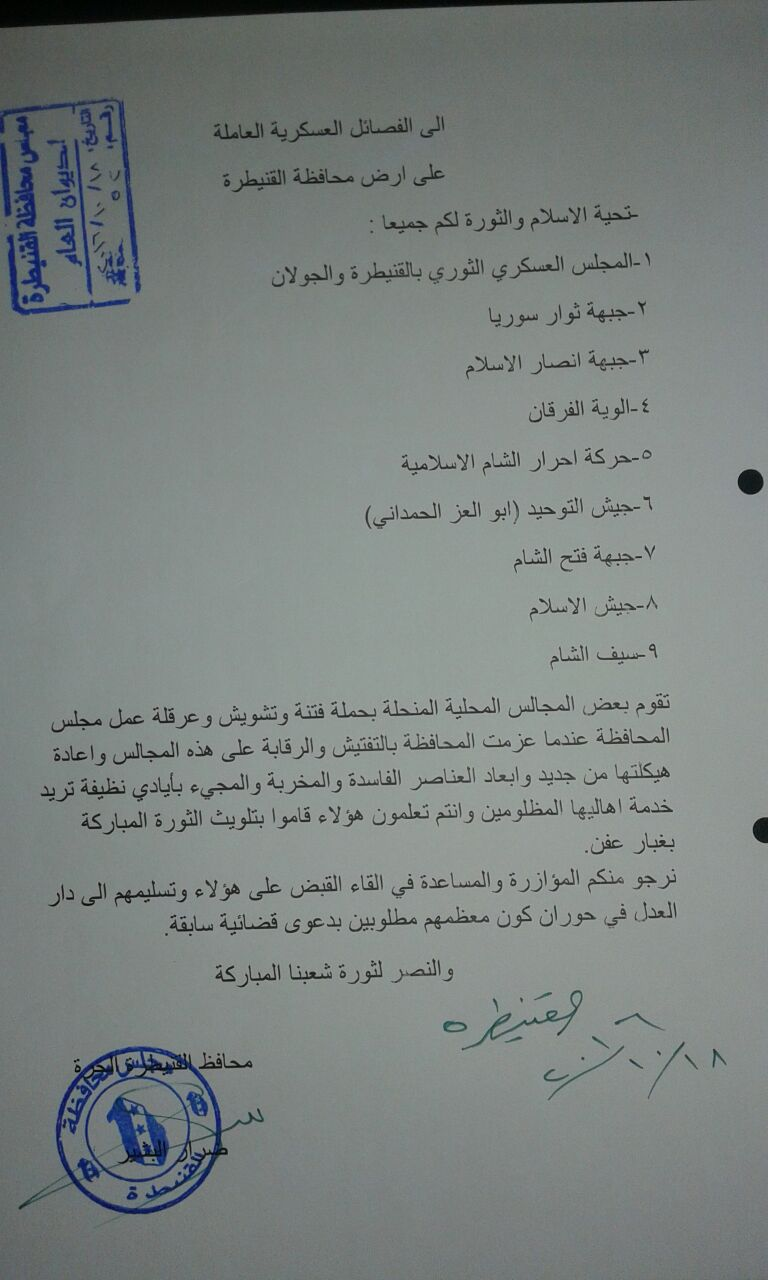 مجلس محافظة القنيطرة
الديوان العام
التاريخ: ٢٠١٦/١٠/١٨
رقم:
الى الفصائل العسكرية العاملة
على ارض محافظة القنيطرة
-تحية الاسلام والثورة لكم جميعا :
١-المجلس العسكري الثوري بالقنيطرة والجولان
٢-جبهة ثوار سوريا
٣-جبهة انصار الاسلام
٤-الوية الفرقان
٥-حركة احرار الشام الاسلامية
٦-جيش التوحيد (ابو العز الحمداني)
٧-جبهة فتح الشام
٨-جيش الاسلام
٩-سيف الشام
تقوم بعض المجالس المحلية المنحلة بحملة فتنة وتشويش وعرقلة عمل مجلس
المحافظة عندما عزمت المحافظة بالتفتيش والرقابة على هذه المجالس واعادة
هيكلتها من جديد وابعاد العناصر الفاسدة والمخربة والمجيء بأيادي نظيفة تريد
خدمة اهاليها المظلومين وانتم تعلمون هؤلاء قاموا بتلويث الثورة المباركة
بغبار عفن.
نرجو منكم المؤازرة والمساعدة في القاء القبض على هؤلاء وتسليمهم الى دار
العدل في حوران كون معظمهم مطلوبين بدعوى قضائية سابقة.
والنصر لثورة شعبنا المباركة
القنيطرة
٢٠١٦/١٠/١٨
محافظ القنيطرة الحرة
ضرار البشير
مجلس محافظة
القنيطرة